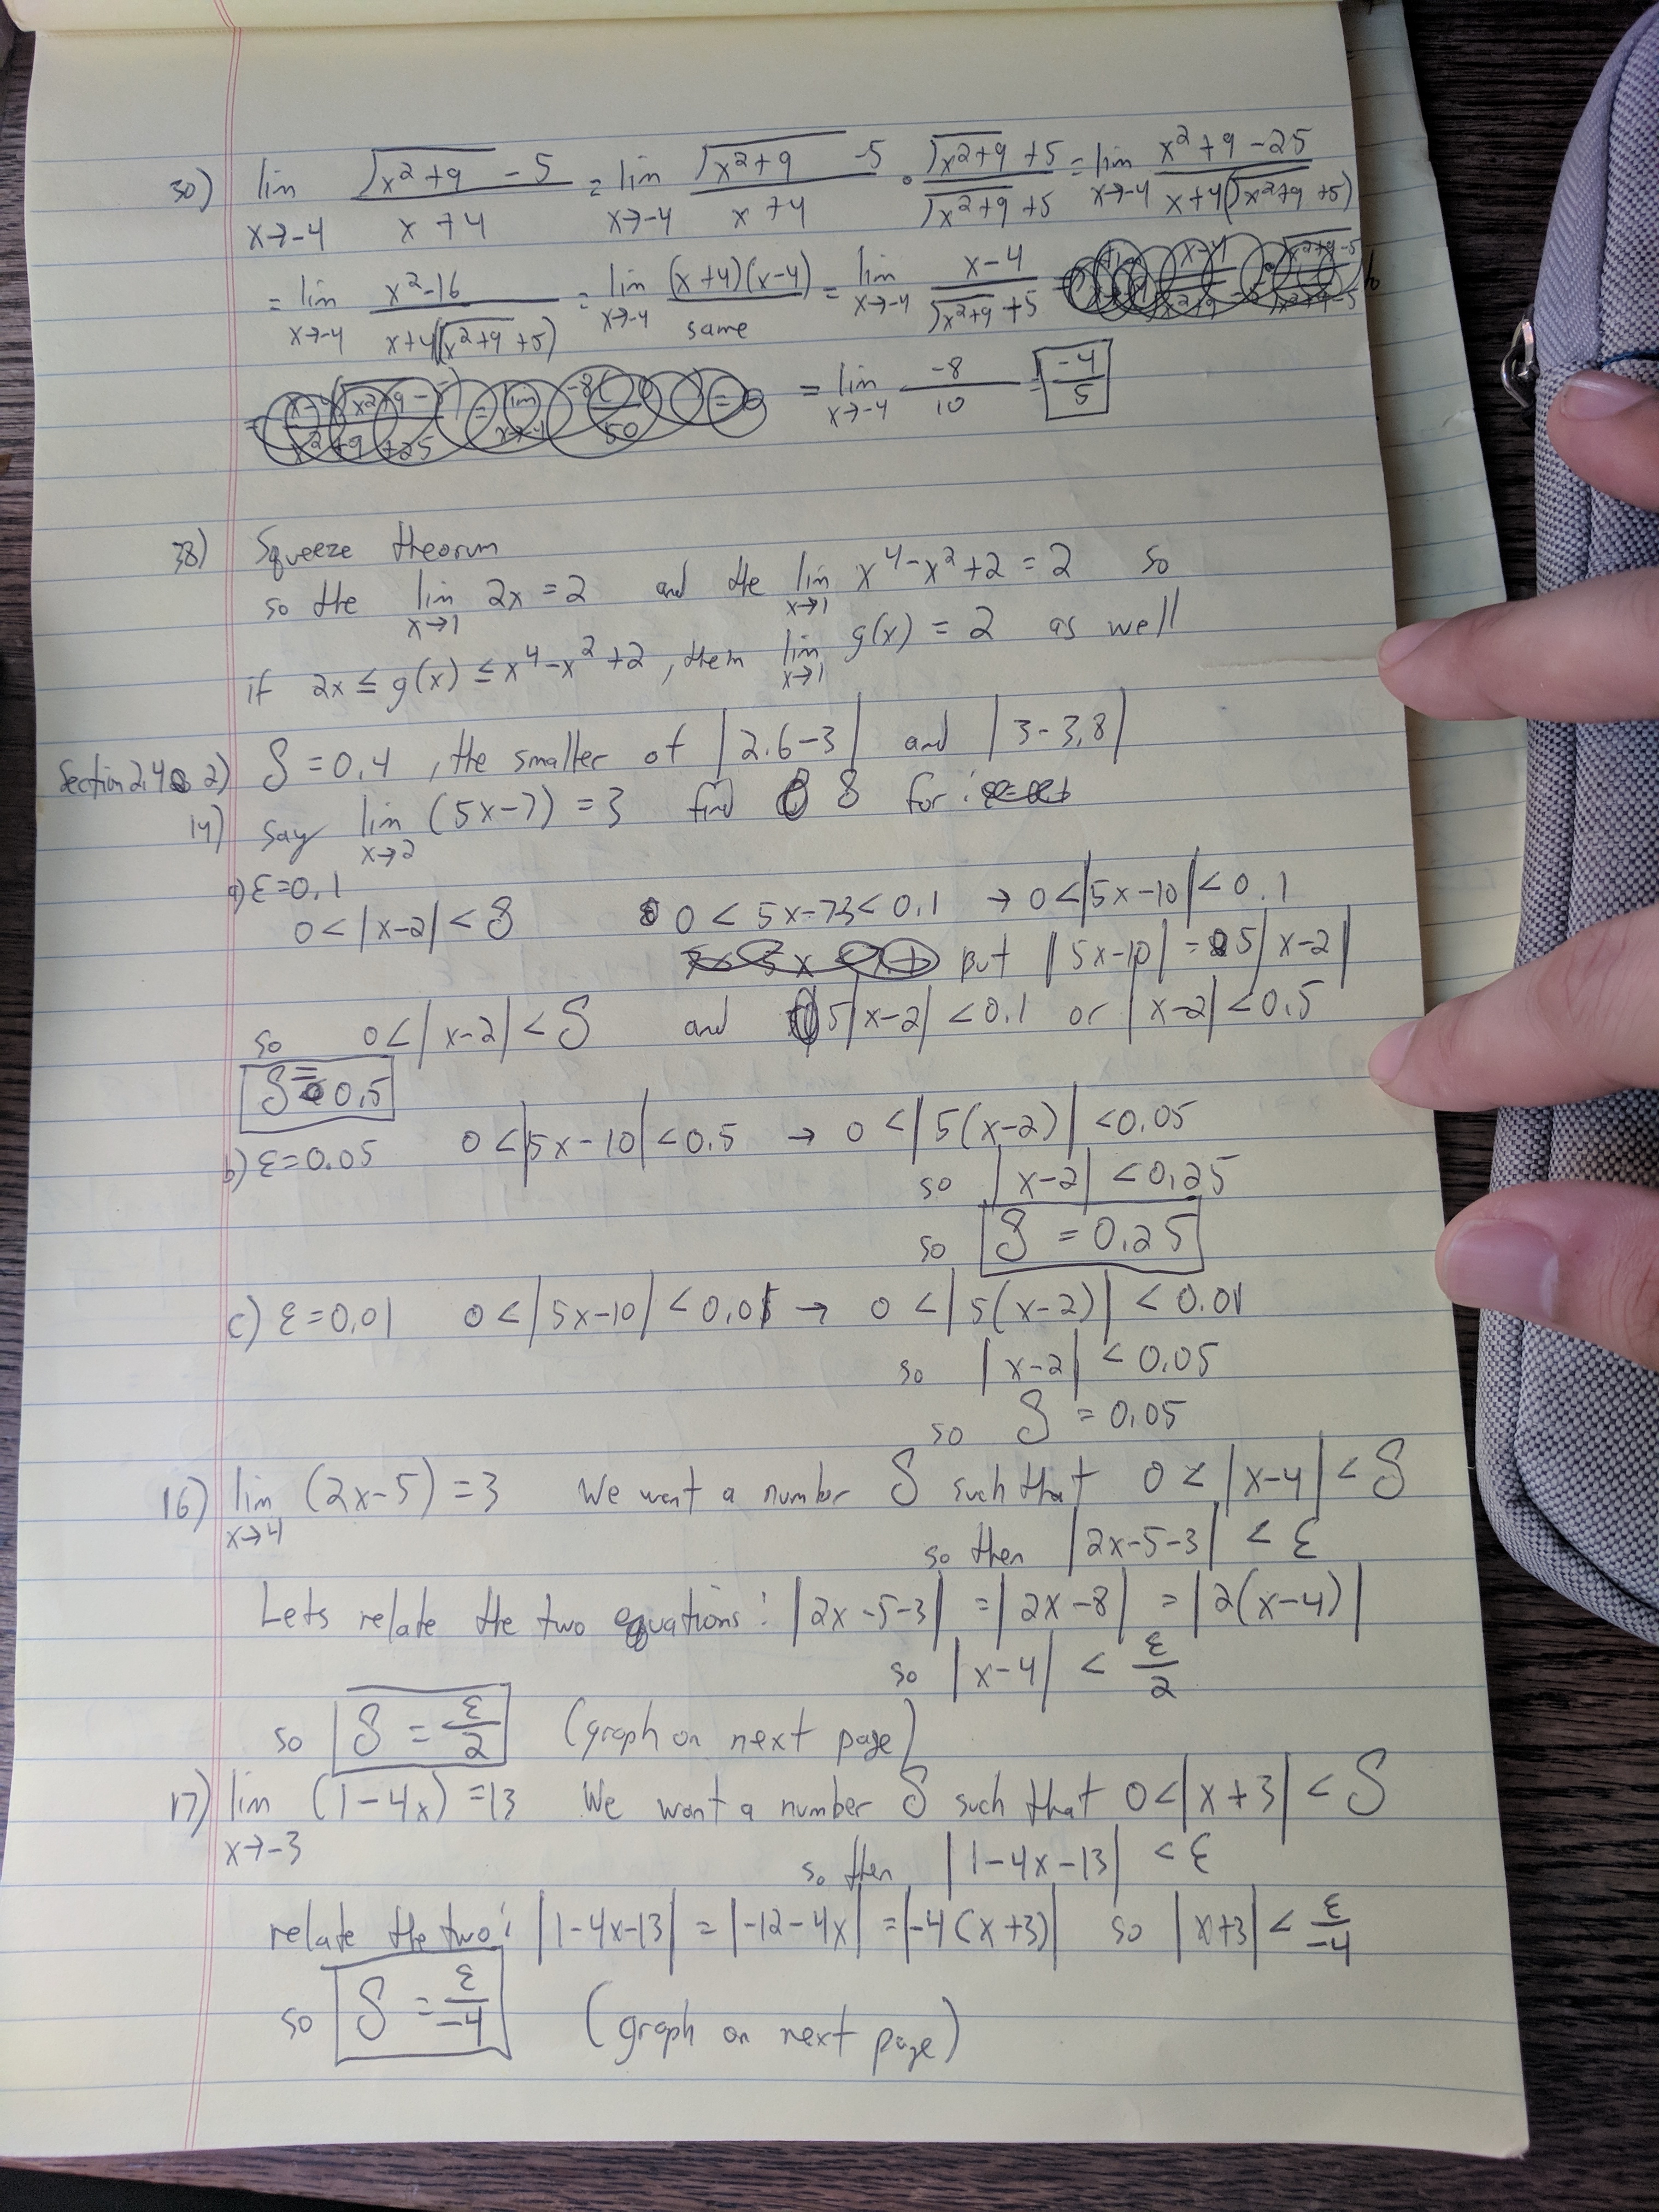 30) lim x→-4 √(x²+9) - 5 / x+4 = lim x→-4 √(x²+9) - 5 / x+4 · √(x²+9) + 5 / √(x²+9) + 5 = lim x→-4 x²+9-25 / x+4(√(x²+9) + 5)
= lim x→-4 x²-16 / x+4(√(x²+9) + 5) = lim x→-4 (x+4)(x-4) / same = lim x→-4 x-4 / √(x²+9) + 5
= lim x→-4 -8/10 = -4/5
38) Squeeze theorum
so the lim x→1 2x = 2 and the lim x→1 x⁴-x²+2 = 2 so
if 2x ≤ g(x) ≤ x⁴-x²+2, then lim x→1 g(x) = 2 as well
Section 2.4 2) δ = 0.4, the smaller of |2.6-3| and |3-3.8|
14) say lim x→2 (5x-7) = 3 find δ for:
a) ε=0.1
0<|x-2|<δ 0 < 5x-73< 0.1 → 0<|5x-10|<0.1
but |5x-10| = 5|x-2|
so 0<|x-2|<δ and 5|x-2| <0.1 or |x-2|<0.5
δ=0.5
b) ε=0.05 0<|5x-10|<0.5 → 0<|5(x-2)|<0.05
so |x-2| <0.25
so δ = 0.25
c) ε=0.01 0<|5x-10|<0.01 → 0<|5(x-2)| < 0.01
so |x-2| < 0.05
so δ = 0.05
16) lim x→4 (2x-5) = 3 We want a number δ such that 0 < |x-4| < δ
so then |2x-5-3| < ε
Lets relate the two equations: |2x-5-3| = |2x-8| = |2(x-4)|
so |x-4| < ε/2
so δ = ε/2 (graph on next page)
17) lim x→-3 (1-4x) =13 We want a number δ such that 0<|x+3| < δ
so then |1-4x-13| < ε
relate the two: |1-4x-13| = |-12-4x| = |-4(x+3)| so |x+3| < ε/-4
so δ = ε/-4 (graph on next page)